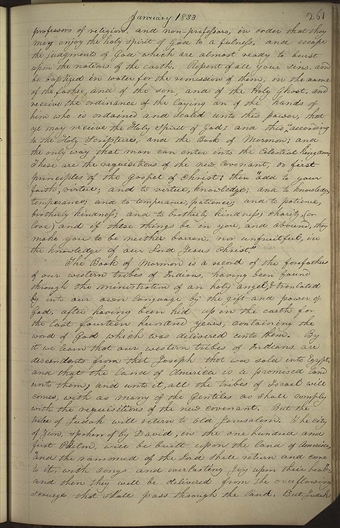 January 1833 261
professors of religion, and non-professors, in order that they
may enjoy the holy spirit of God to a fulness, and escape
the judgments of God which are almost ready to burst
upon the nations of the earth. Repent of all your sins, and
be baptized in water for the remission of them, in the name
of the father, and of the son, and of the Holy Ghost, and
receive the ordinance of the laying on of the hands of
him who is ordained and sealed unto this power, that
ye may receive the Holy spirit of God; and this "according
to the Holy Scriptures, and the Book of Mormon; and
the only way that man can enter into the Celestial kingdom.
These are the requisitions of the new covenant, or first
principles of the Gospel of Christ: then "add to your
faith, virtue; and to virtue, knowledge; and to knowledge,
temperance; and to temperance, patience; and to patience,
brotherly kindness; and to brotherly kindness charity, (or
love) and if these things be in you, and abound, they
make you to be neither barren, nor unfruitful, in
the knowledge of our Lord Jesus Christ."
The Book of Mormon is a record of the forefathers
of our western tribes of Indians, having been found
through the ministration of an holy angel, & translated
into our own language by the gift and power of
God, after having been hid up in the earth for
the last fourteen hundred years, containing the
word of God which was delivered unto them. By
it we learn that our western tribes of Indians are
descendants from that Joseph that was sold into Egypt,
and that the land of America is a promised land
unto them, and unto it, all the tribes of Israel will
come, with as many of the Gentiles as shall comply
with the requisitions of the new covenant. But the
tribe of Judah will return to old Jerusalem. The city
of Zion, spoken of by David, in the one hundred and
first Psalm will be built upon the land of America,
"and the ransomed of the Lord shall return and come
to it, with songs and everlasting joy upon their heads,"
and then they will be delivered from the overflowing
scourge that shall pass through the land. But Judah